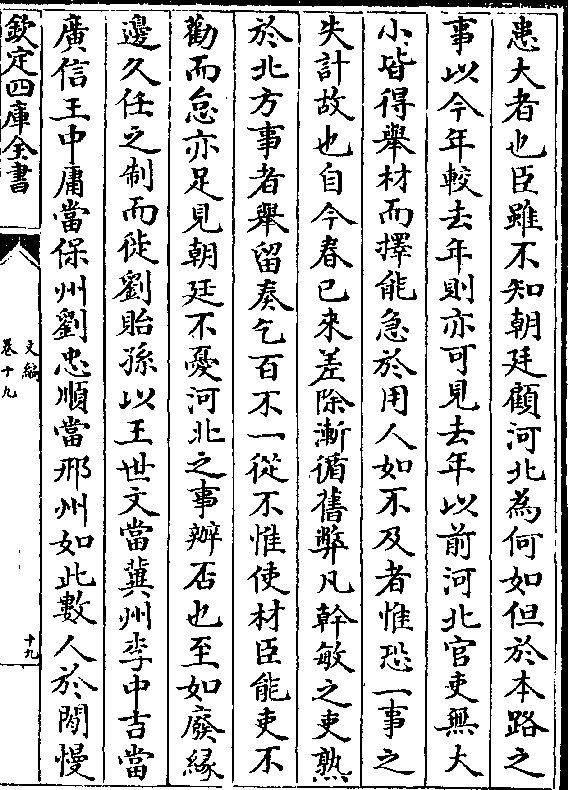 患大者也臣雖不知朝廷顧河北為何如但於本路之
事以今年較去年則亦可見去年以前河北官吏無大
小皆得舉材而擇能急於用人如不及者惟恐一事之
失計故也自今春已來差除漸循舊弊凡幹敏之吏熟
於北方事者舉留奏乞百不一從不惟使材臣能吏不
勸而怠亦足見朝廷不憂河北之事辦否也至如廢緣
邊久任之制而徙劉貽孫以王世文當冀州李中吉當
廣信王中庸當保州劉忠順當邢州如此數人於閒慢
欽定四庫全書
文編
卷十九
十九